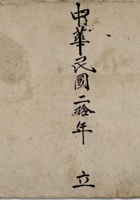 中華民國二拾年 立